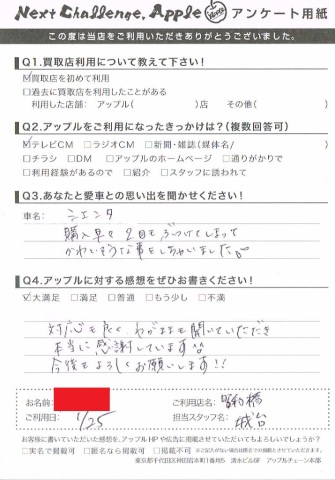 Next Challenge, Apple アンケート用紙
この度は当店をご利用いただきありがとうございました。
Q1.買取店利用について教えて下さい！
☑買取店を初めて利用
□過去に買取店を利用したことがある
利用した店舗： アップル(　　　)店　その他(　　　)
Q2.アップルをご利用になったきっかけは？(複数回答可)
☑テレビCM　□ラジオCM　□新聞・雑誌(媒体名/　　　)
□チラシ　□DM　□アップルのホームページ　□通りがかりで
□利用経験があるので　□紹介　□スタッフに誘われて
Q3.あなたと愛車との思い出を聞かせください！
車名： シエンタ
購入早々 2回もぶつけてしまって
かわいそうな事をしちゃいました。
Q4.アップルに対する感想をぜひお書きください！
☑大満足　□満足　□普通　□もう少し　□不満
対応も良く わがままも聞いていただき
本当に感謝しています
今後もよろしくお願いします!!
お名前:
ご利用店名： 昭和橋
ご利用日： 1/25
担当スタッフ名：
お客様に書いていただいた感想を、アップルHPや広告に掲載させていただいてもよろしいでしょうか？
□実名で掲載可　□匿名なら掲載可　□掲載不可
東京都千代田区神田岩本町1番地5　清水ビル6F　アップルチェーン本部